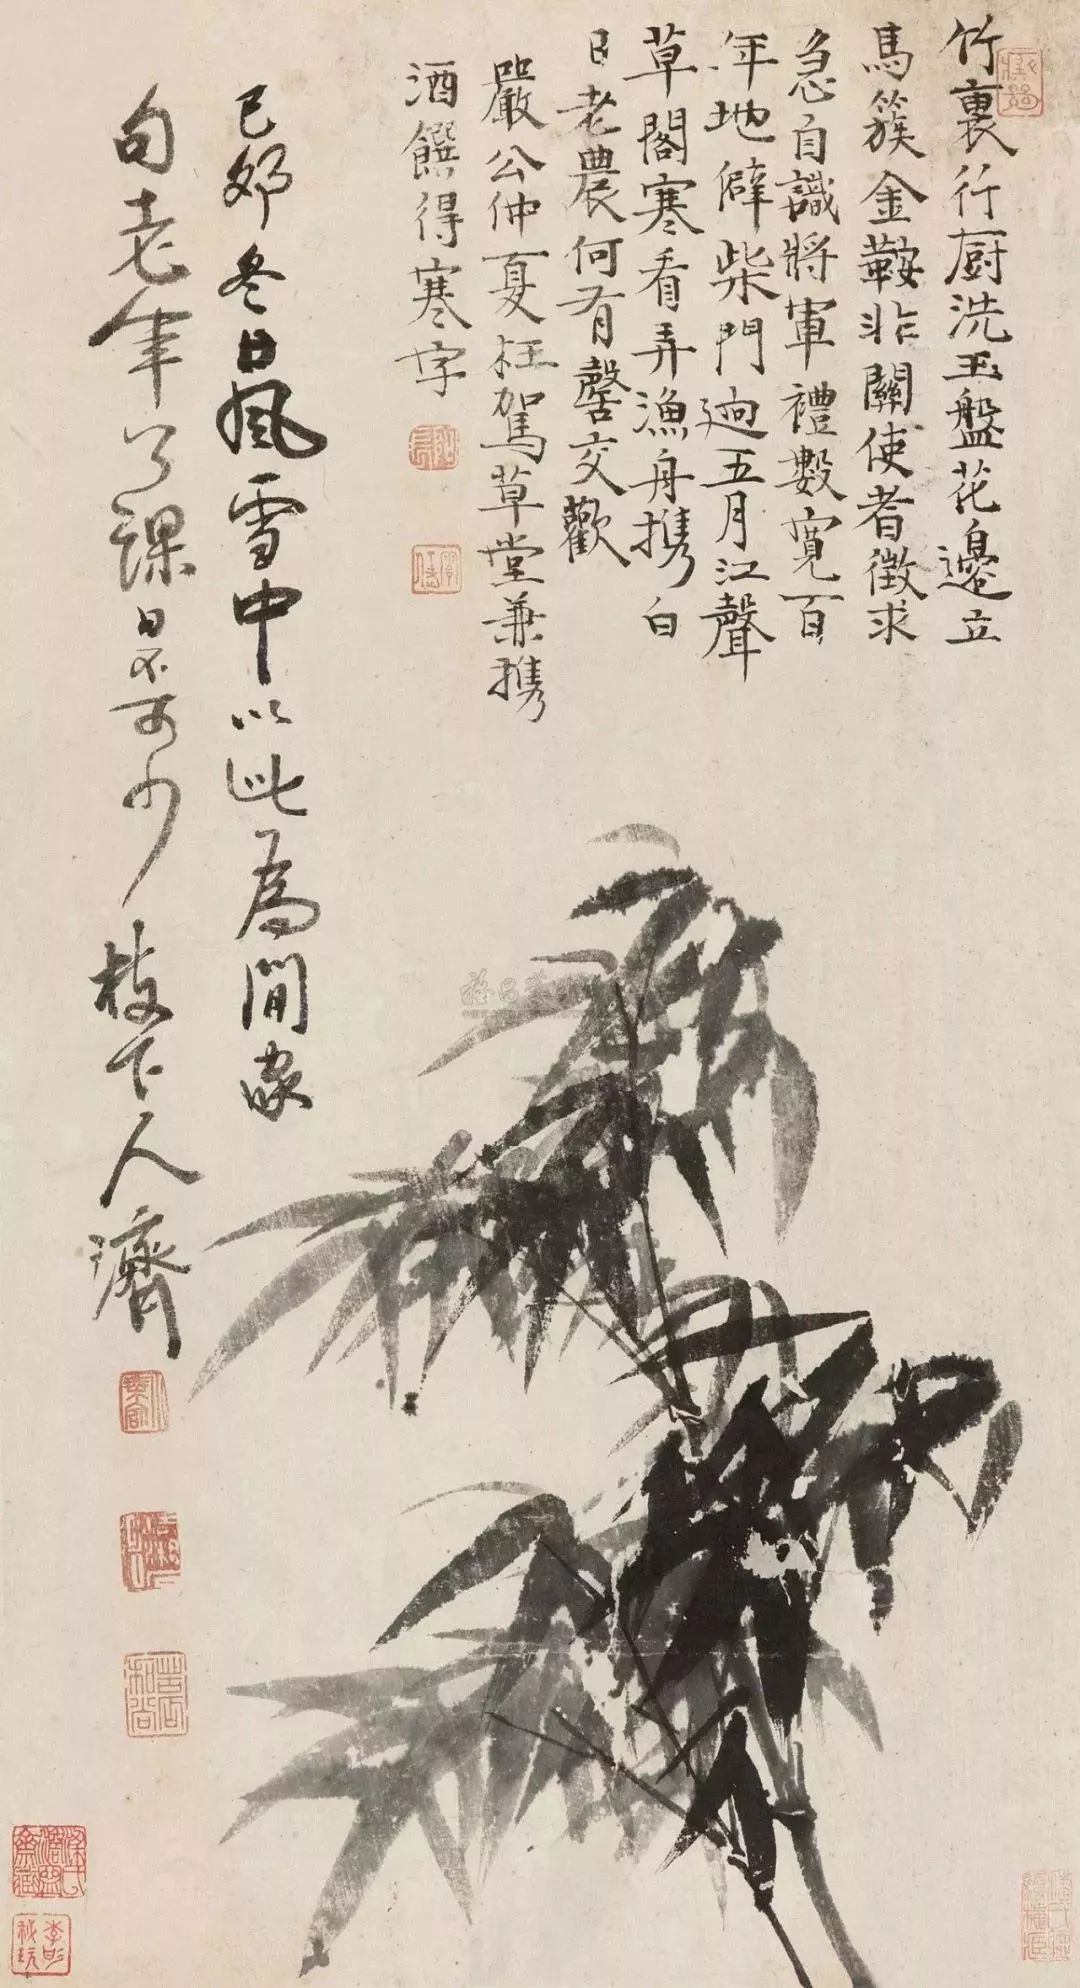 竹裏行厨洗玉盤花邊立
馬簇金鞍非關使者徵求
急自識將軍禮數寬百
年地僻柴門迥五月江聲
草閣寒看弄漁舟携白
日老農何有罄交歡
嚴公仲夏枉駕草堂兼携
酒饌得寒字
己卯冬日風雪中以此為閒家
句老年了課是不可少枝下人濟
苦瓜和尚